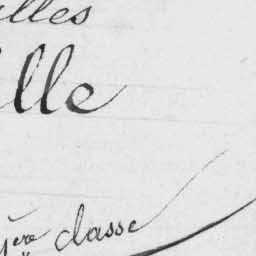 elles
lle
1ère classe